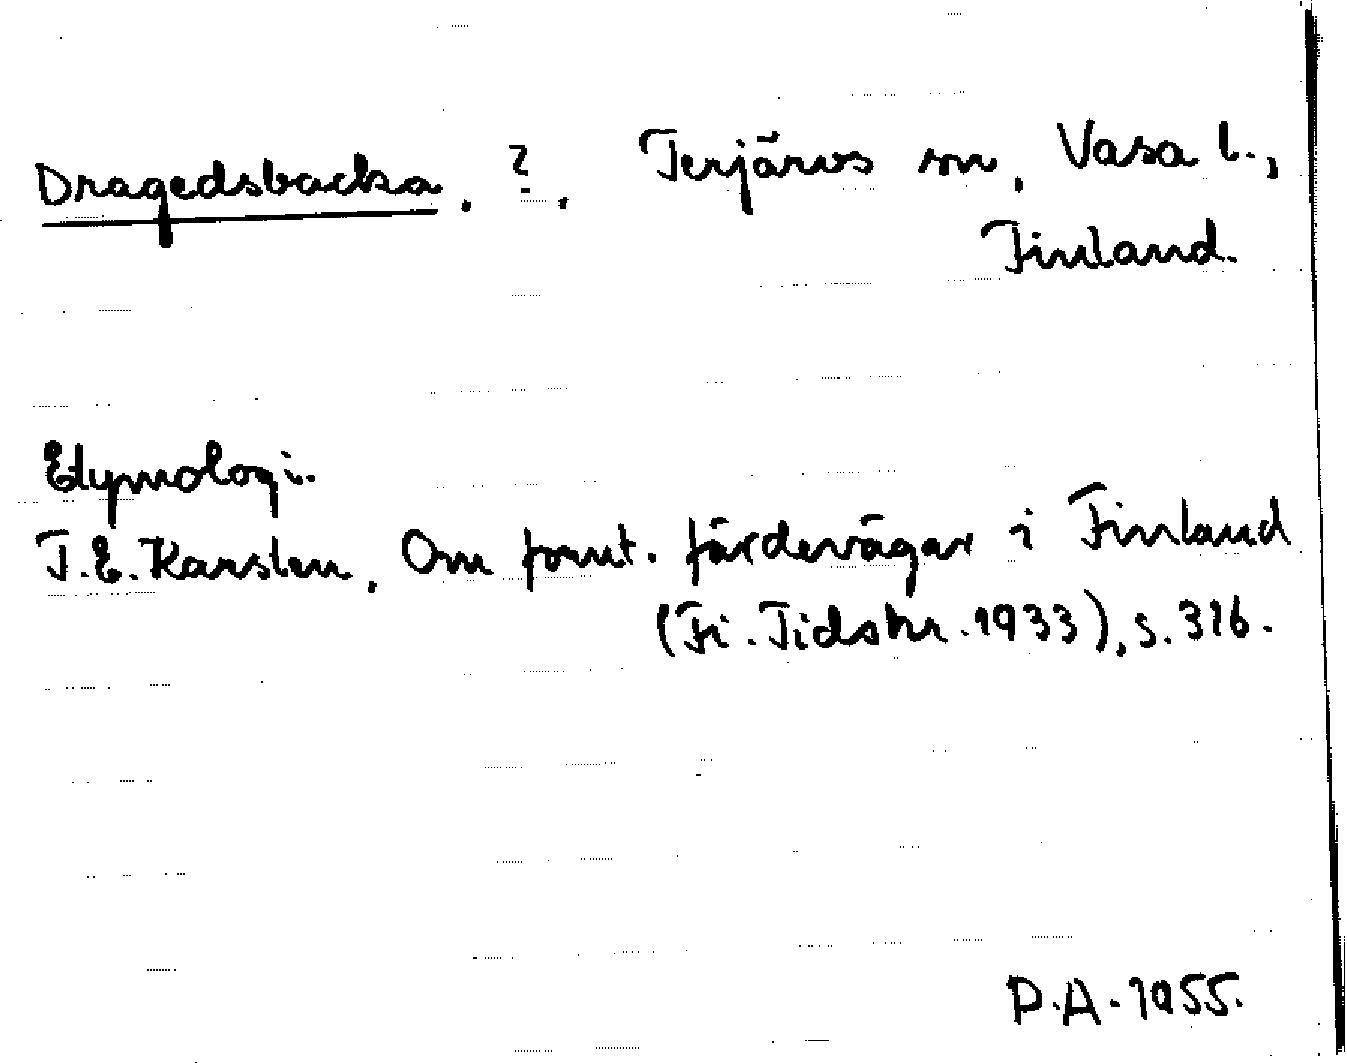 Dragedsbacka, ?, Terjärvs sn, Vasa l.,
Finland.
Etymologi.
T.E. Karsten, Om fornt. färdevägar i Finland
(Fi. Tidskr. 1933), s. 316.
P.A. 1955.